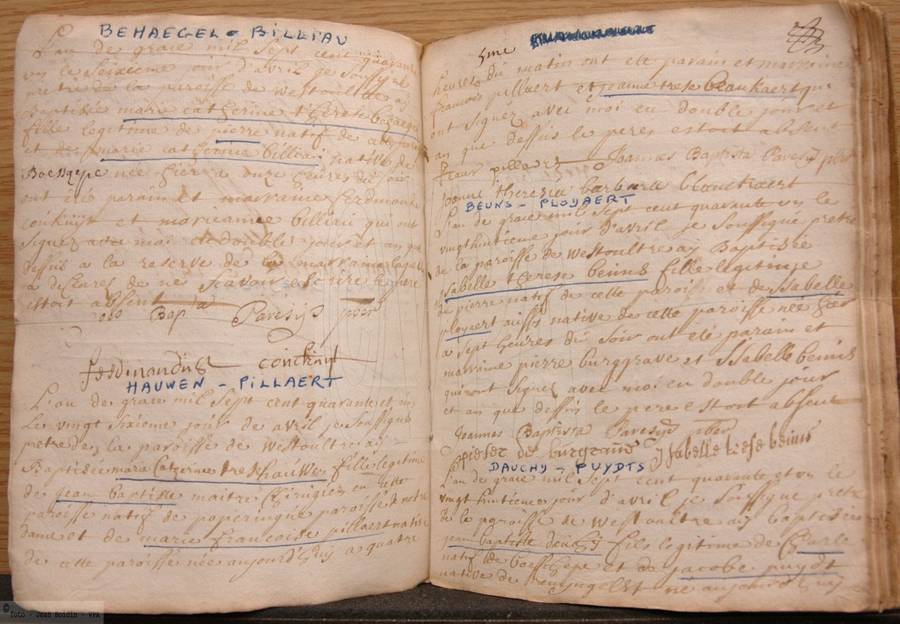 BEHAEGEL - BILLIAU
L'an de grace mil sept cent quarante
un le seixieme jour d'avril je soussigné
pretre de la paroisse de westoultre ay
Baptisée marie catherine therese behaegel
fille legitime de pierre natif de
et de marie catherine billiau native de
Boesegepe née hier a onze heures de soir
ont été parain et marraine ferdinande
coinkuyt et marianne billiau qui ont
signez avec moi en double jour et an que
dessus a la reserve de la marraine laquelle
a de ne scavoir escrire le pere
estoit absent
Joes Bapta Paresys pbr
ferdinandus
HAUWEN - PILLAERT
L'an de grace mil sept cent quarante et un
Le vingt sixieme jour de avril je soussigné
pretre de la paroisse de westoultre ay
Baptisée maria caterine hauwen fille legitime
de jean baptiste maitre chirugien en cette
paroisse natif de poperingue paroisse de notre
dame et de marie francoise pillaert native
de cette paroisse née aujourd'huy a quatre
5me
heures du matin ont été parain et marraine
francois pillaert et jeanne trese blanckaert qui
ont signez avec moi en double jour et
an que dessus le pere estoit absent
frans pillaert Joannes Baptista Paresys pbr
joanne theresia barbara blanckaert
BEUNS - PLOYAERT
L'an de grace mil sept cent quarante un le
vingthuitieme jour d'avril je soussigné pretre
de la paroisse de westoultre ay Baptisée
isabelle therese beuns fille legitime
de pierre natif de cette paroisse et de isabelle
ployaert aussi native de cette paroisse née hier
a sept heures du soir ont été parain et
marraine pierre burggrave et isabelle beuns
qui ont signez avec moi en double jour
et an que dessus le pere estoit absent
Joannes Baptista Paresys pbr
pieter de burgrave Isabelle trese beuns
DAUCHY - PUYDTS
L'an de grace mil sept cent quarante et un le
vingt huitieme jour d'avril je soussigné pretre
de la paroisse de westoultre ay baptisé
jean baptiste dauchy fils legitime de charle
natif de boeschepe et de jacobe puydt
native de né aujourd'huy
© foto - Jean Boidin - vra